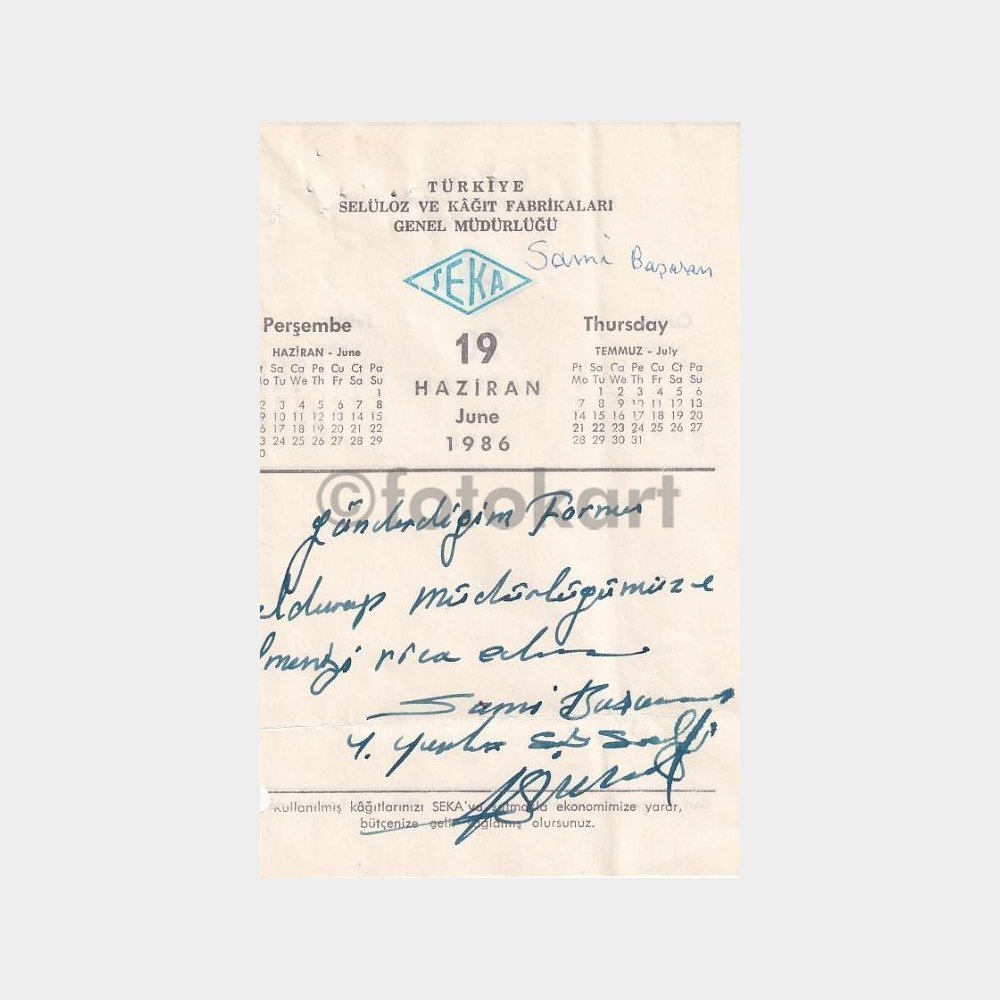 TÜRKİYE
SELÜLOZ VE KÂĞIT FABRİKALARI
GENEL MÜDÜRLÜĞÜ
SEKA
Sami Başaran
Perşembe
HAZİRAN - June
t Sa Ca Pe Cu Ct Pa
o Tu We Th Fr Sa Su
1
2 3 4 5 6 7 8
9 10 11 12 13 14 15
6 17 18 19 20 21 22
3 24 25 26 27 28 29
0
19
HAZİRAN
June
1986
Thursday
TEMMUZ - July
Pt Sa Ca Pe Cu Ct Pa
Mo Tu We Th Fr Sa Su
1 2 3 4 5 6
7 8 9 10 11 12 13
14 15 16 17 18 19 20
21 22 23 24 25 26 27
28 29 30 31
©fotokart
gönderdiğim Formu
müdürlüğümüze
rica
Sami Başaran
Kullanılmış kâğıtlarınızı SEKA'ya satmakla ekonomimize yarar,
bütçenize gelir sağlamış olursunuz.